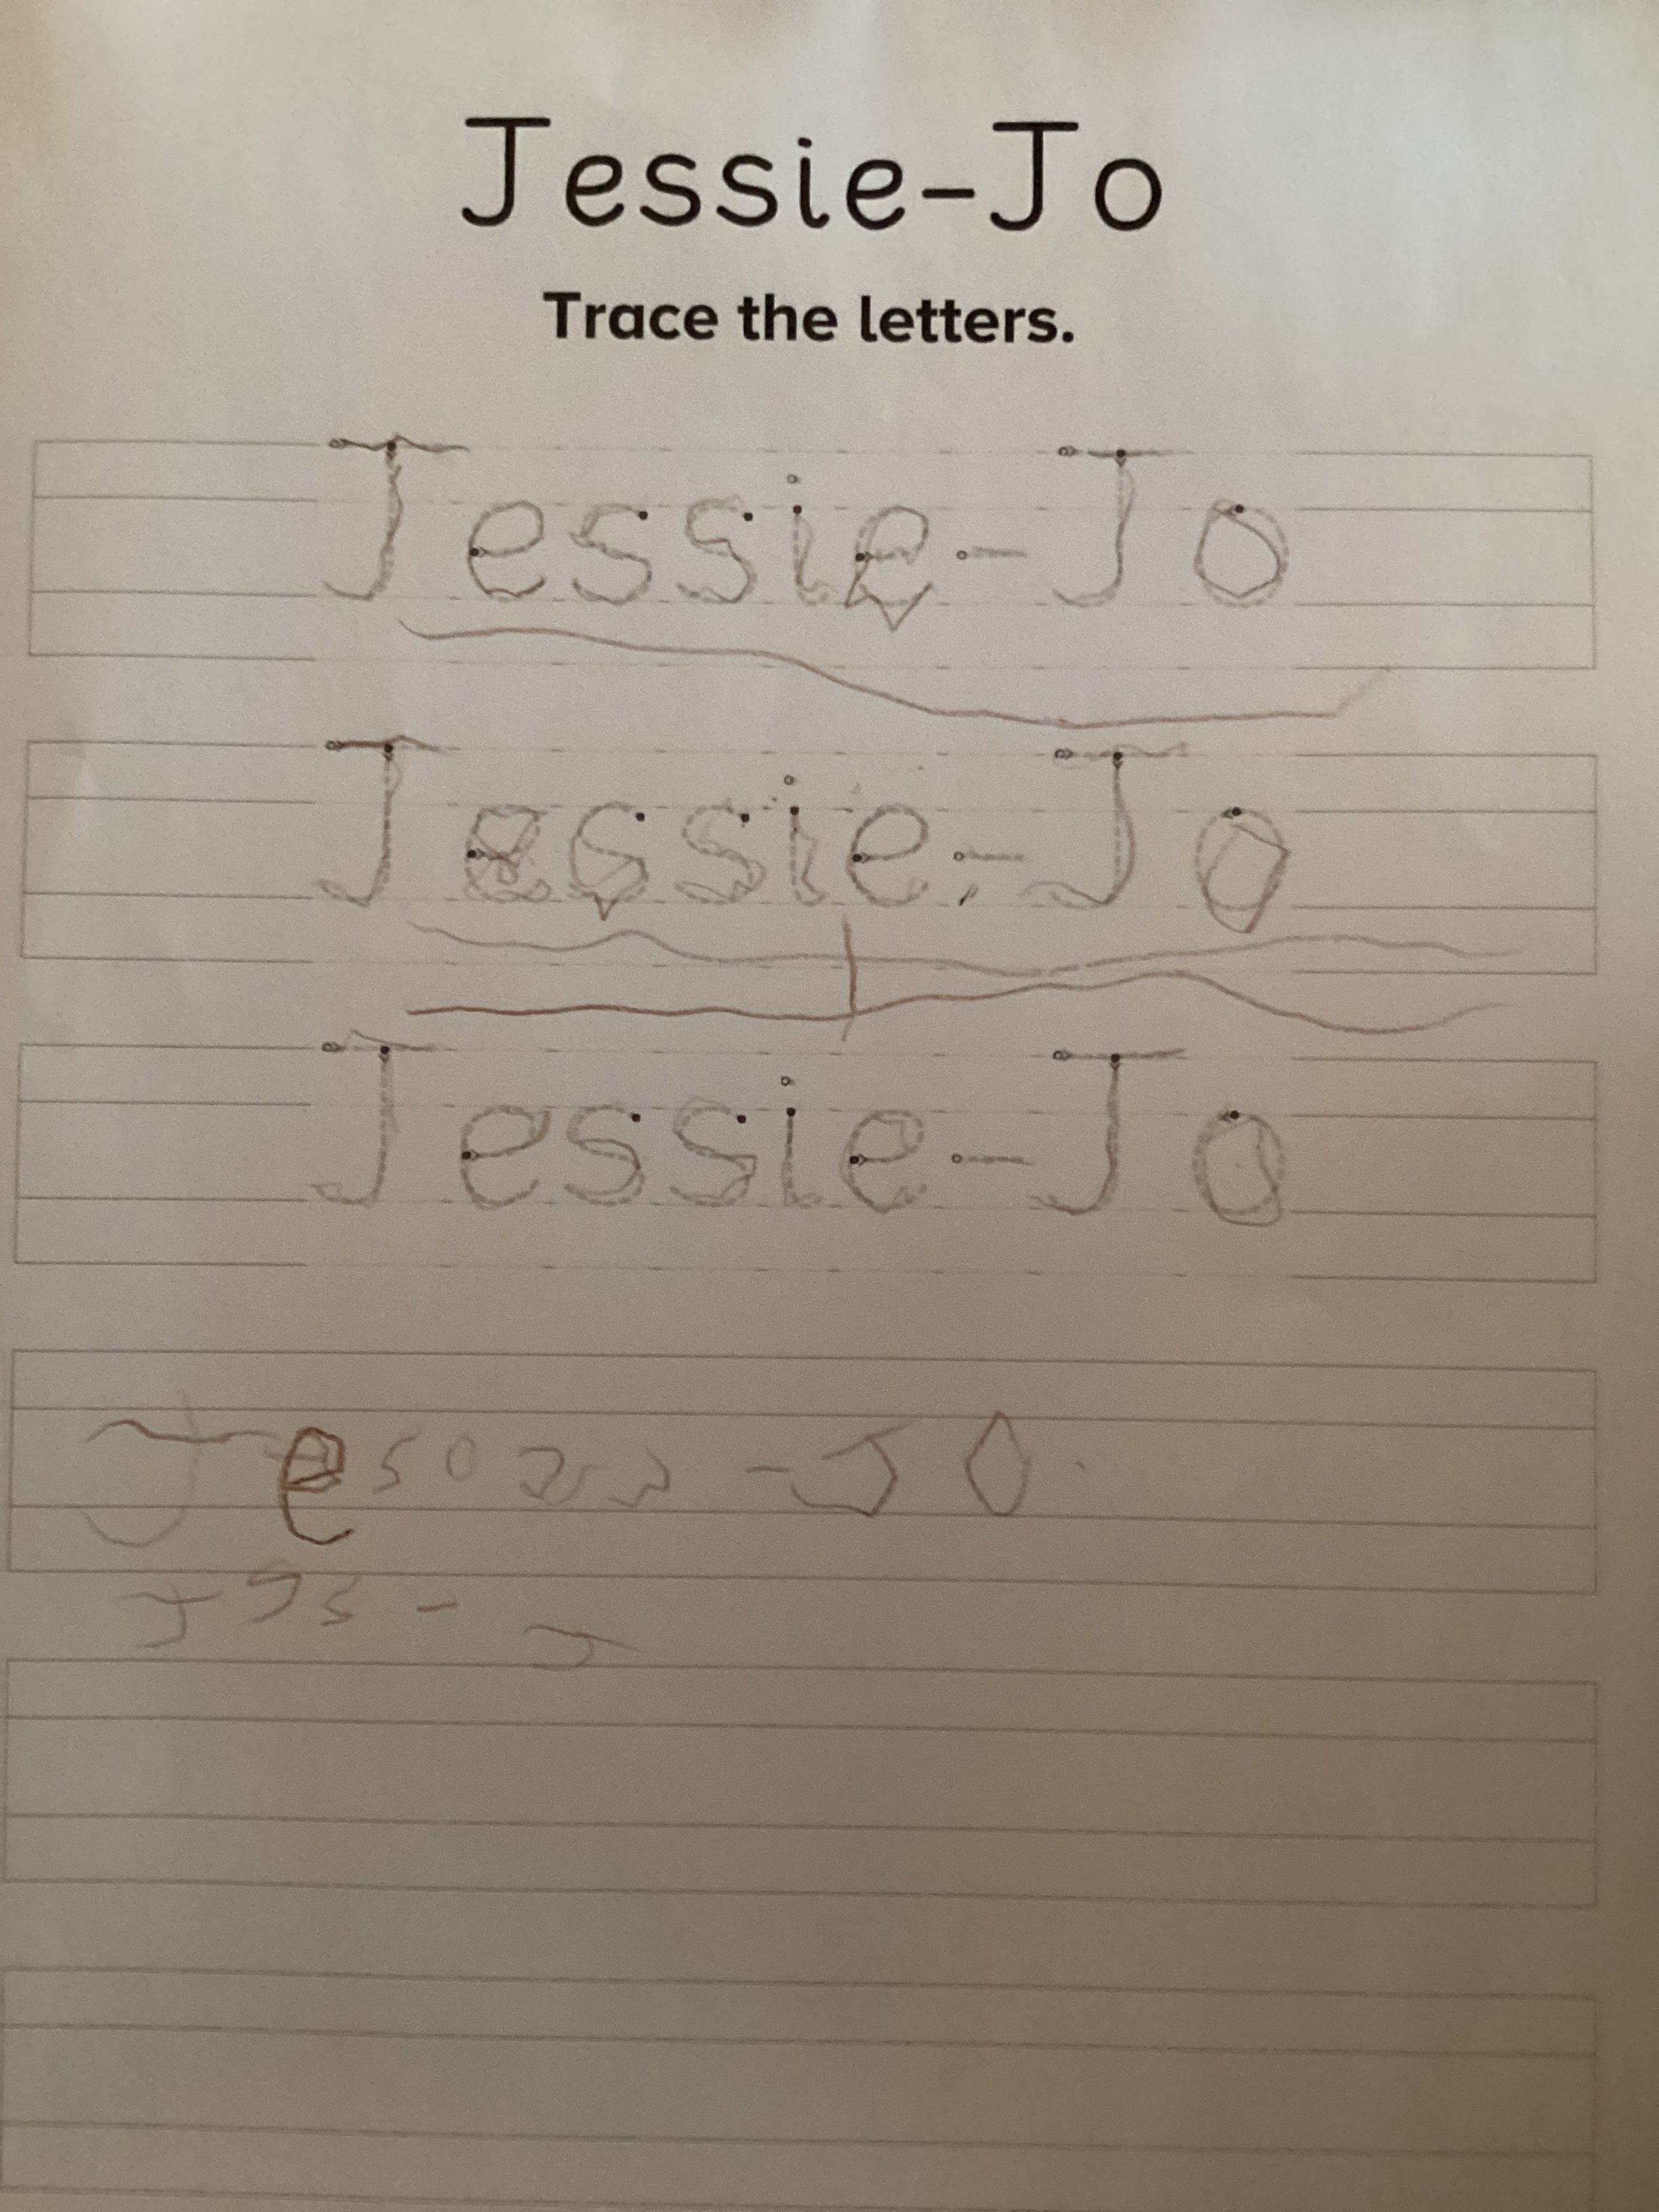 Jessie-Jo
Trace the letters.
Jessie-Jo
Jessie-Jo
Jessie-Jo
Jes - Jo
J s - J